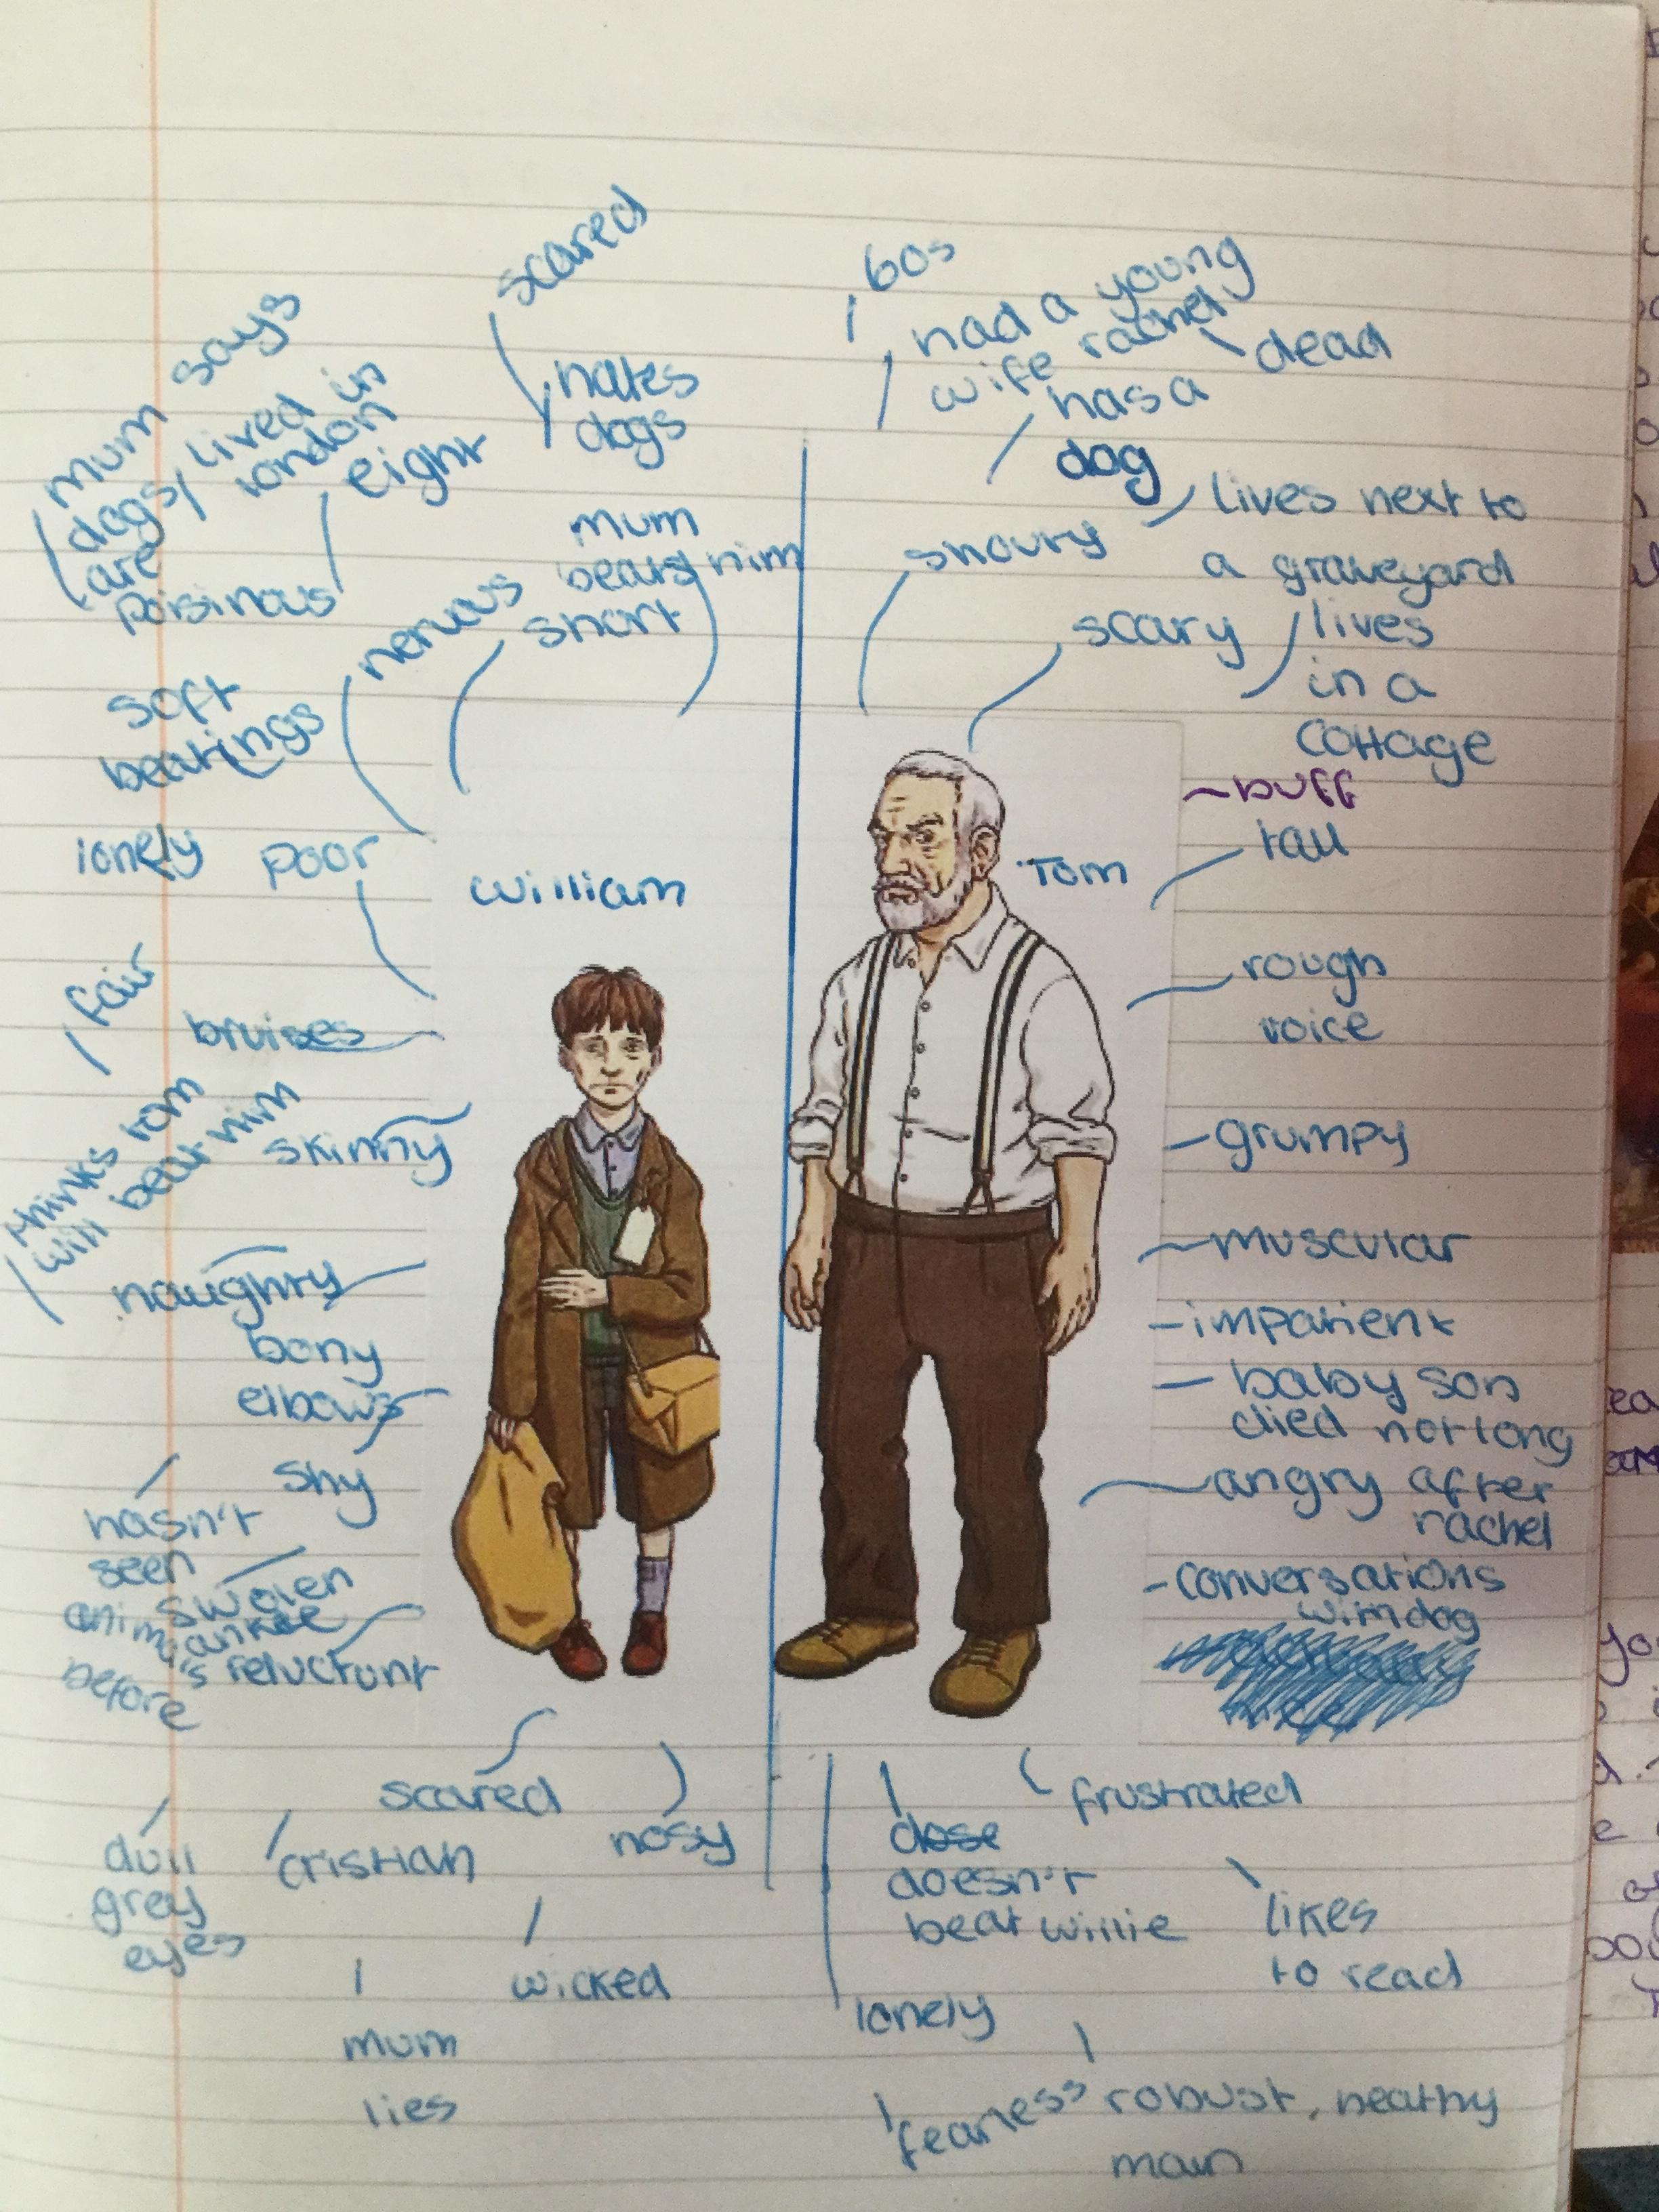 scared
hates
dogs
mum says
dogs
are
poisinous
lived in
london
eight
mum
beats him
nervous
short
soft
beatings
lonely
poor
William
fair
bruises
thinks tom
will beat him
skinny
naughty
bony
elbows
shy
hasn't
seen
before
swolen
ankle
reluctant
scared
nosy
dull
grey
eyes
cristian
wicked
mum
lies
60s
had a young
wife rachel
dead
has a
dog
lives next to
a graveyard
shouty
scary
lives
in a
cottage
buff
tall
Tom
rough
voice
grumpy
muscular
impatient
baby son
died not long
after
rachel
angry
conversations
with dog
frustrated
dose
doesn't
beat willie
likes
to read
lonely
fearless
robust, heathy
man